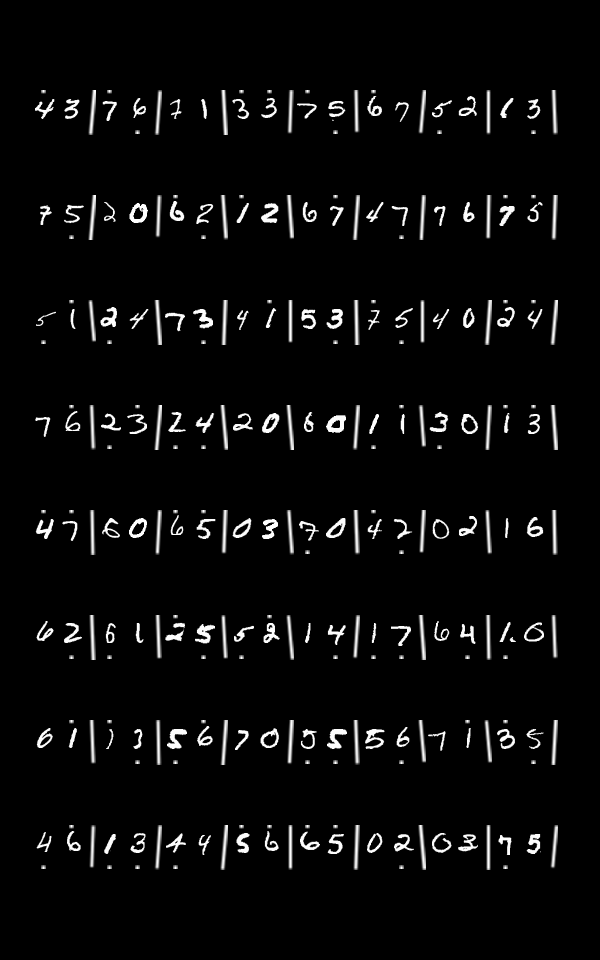 4 3 | 7 6 | 7 1 | 3 3 | 7 5 | 6 7 | 5 2 | 1 3 |
7 5 | 2 0 | 6 2 | 1 2 | 6 7 | 4 7 | 7 6 | 7 5 |
5 1 | 2 4 | 7 3 | 4 1 | 5 3 | 7 5 | 4 0 | 2 4 |
7 6 | 2 3 | 2 4 | 2 0 | 6 0 | 1 1 | 3 0 | 1 3 |
4 7 | 6 0 | 6 5 | 0 3 | 7 0 | 4 2 | 0 2 | 1 6 |
6 2 | 6 1 | 2 5 | 5 2 | 1 4 | 1 7 | 6 4 | 1 0 |
6 1 | 1 3 | 5 6 | 7 0 | 5 5 | 5 6 | 7 1 | 3 5 |
4 6 | 1 3 | 4 4 | 5 6 | 6 5 | 0 2 | 0 3 | 7 5 |